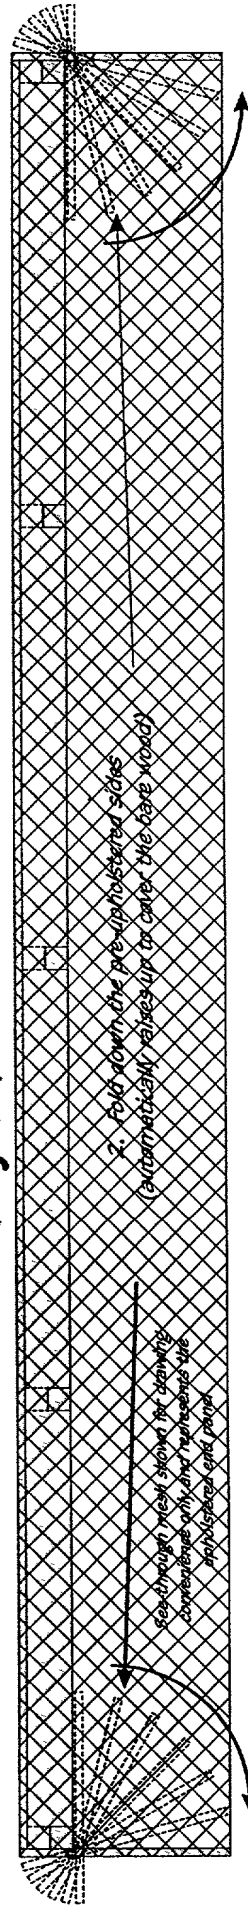 2. Fold down the pre-upholstered sides
(automatically raises up to cover the bare wood)
See-through mesh shown for drawing
convenience only and represents the
upholstered end panel